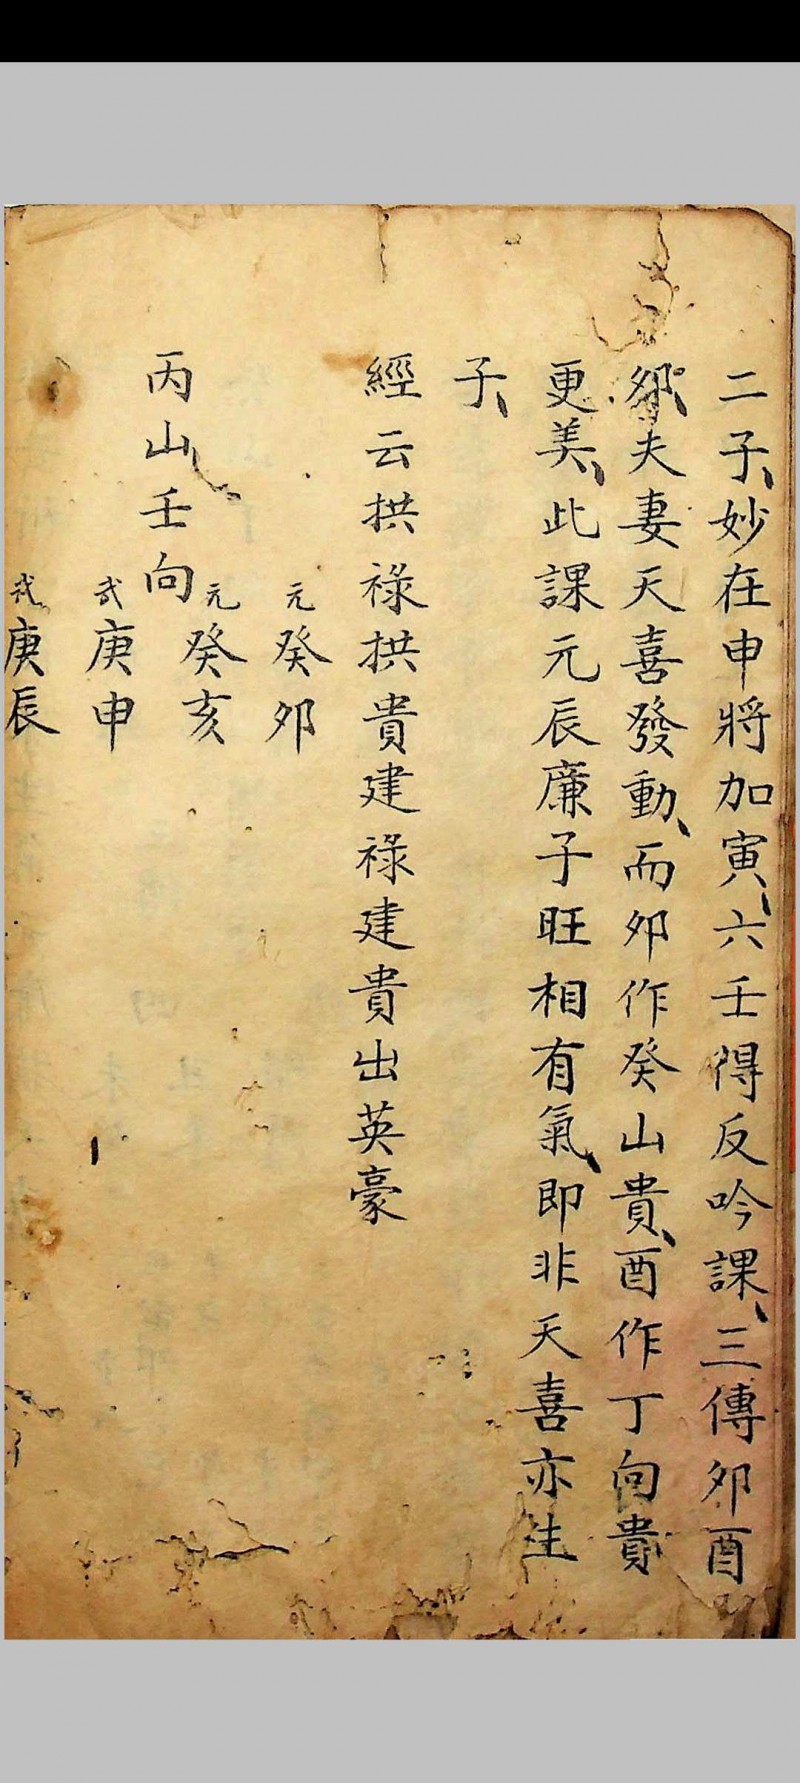 二子、妙在申將加寅、六壬得反吟課、三傳卯酉
卯、夫妻天喜發動、而卯作癸山貴、酉作丁向貴
更美、此課元辰廉子旺相有氣、即非天喜亦生
子、
經云拱祿拱貴建祿建貴出英豪
元癸卯
元癸亥
丙山壬向
弍庚申
弍庚辰